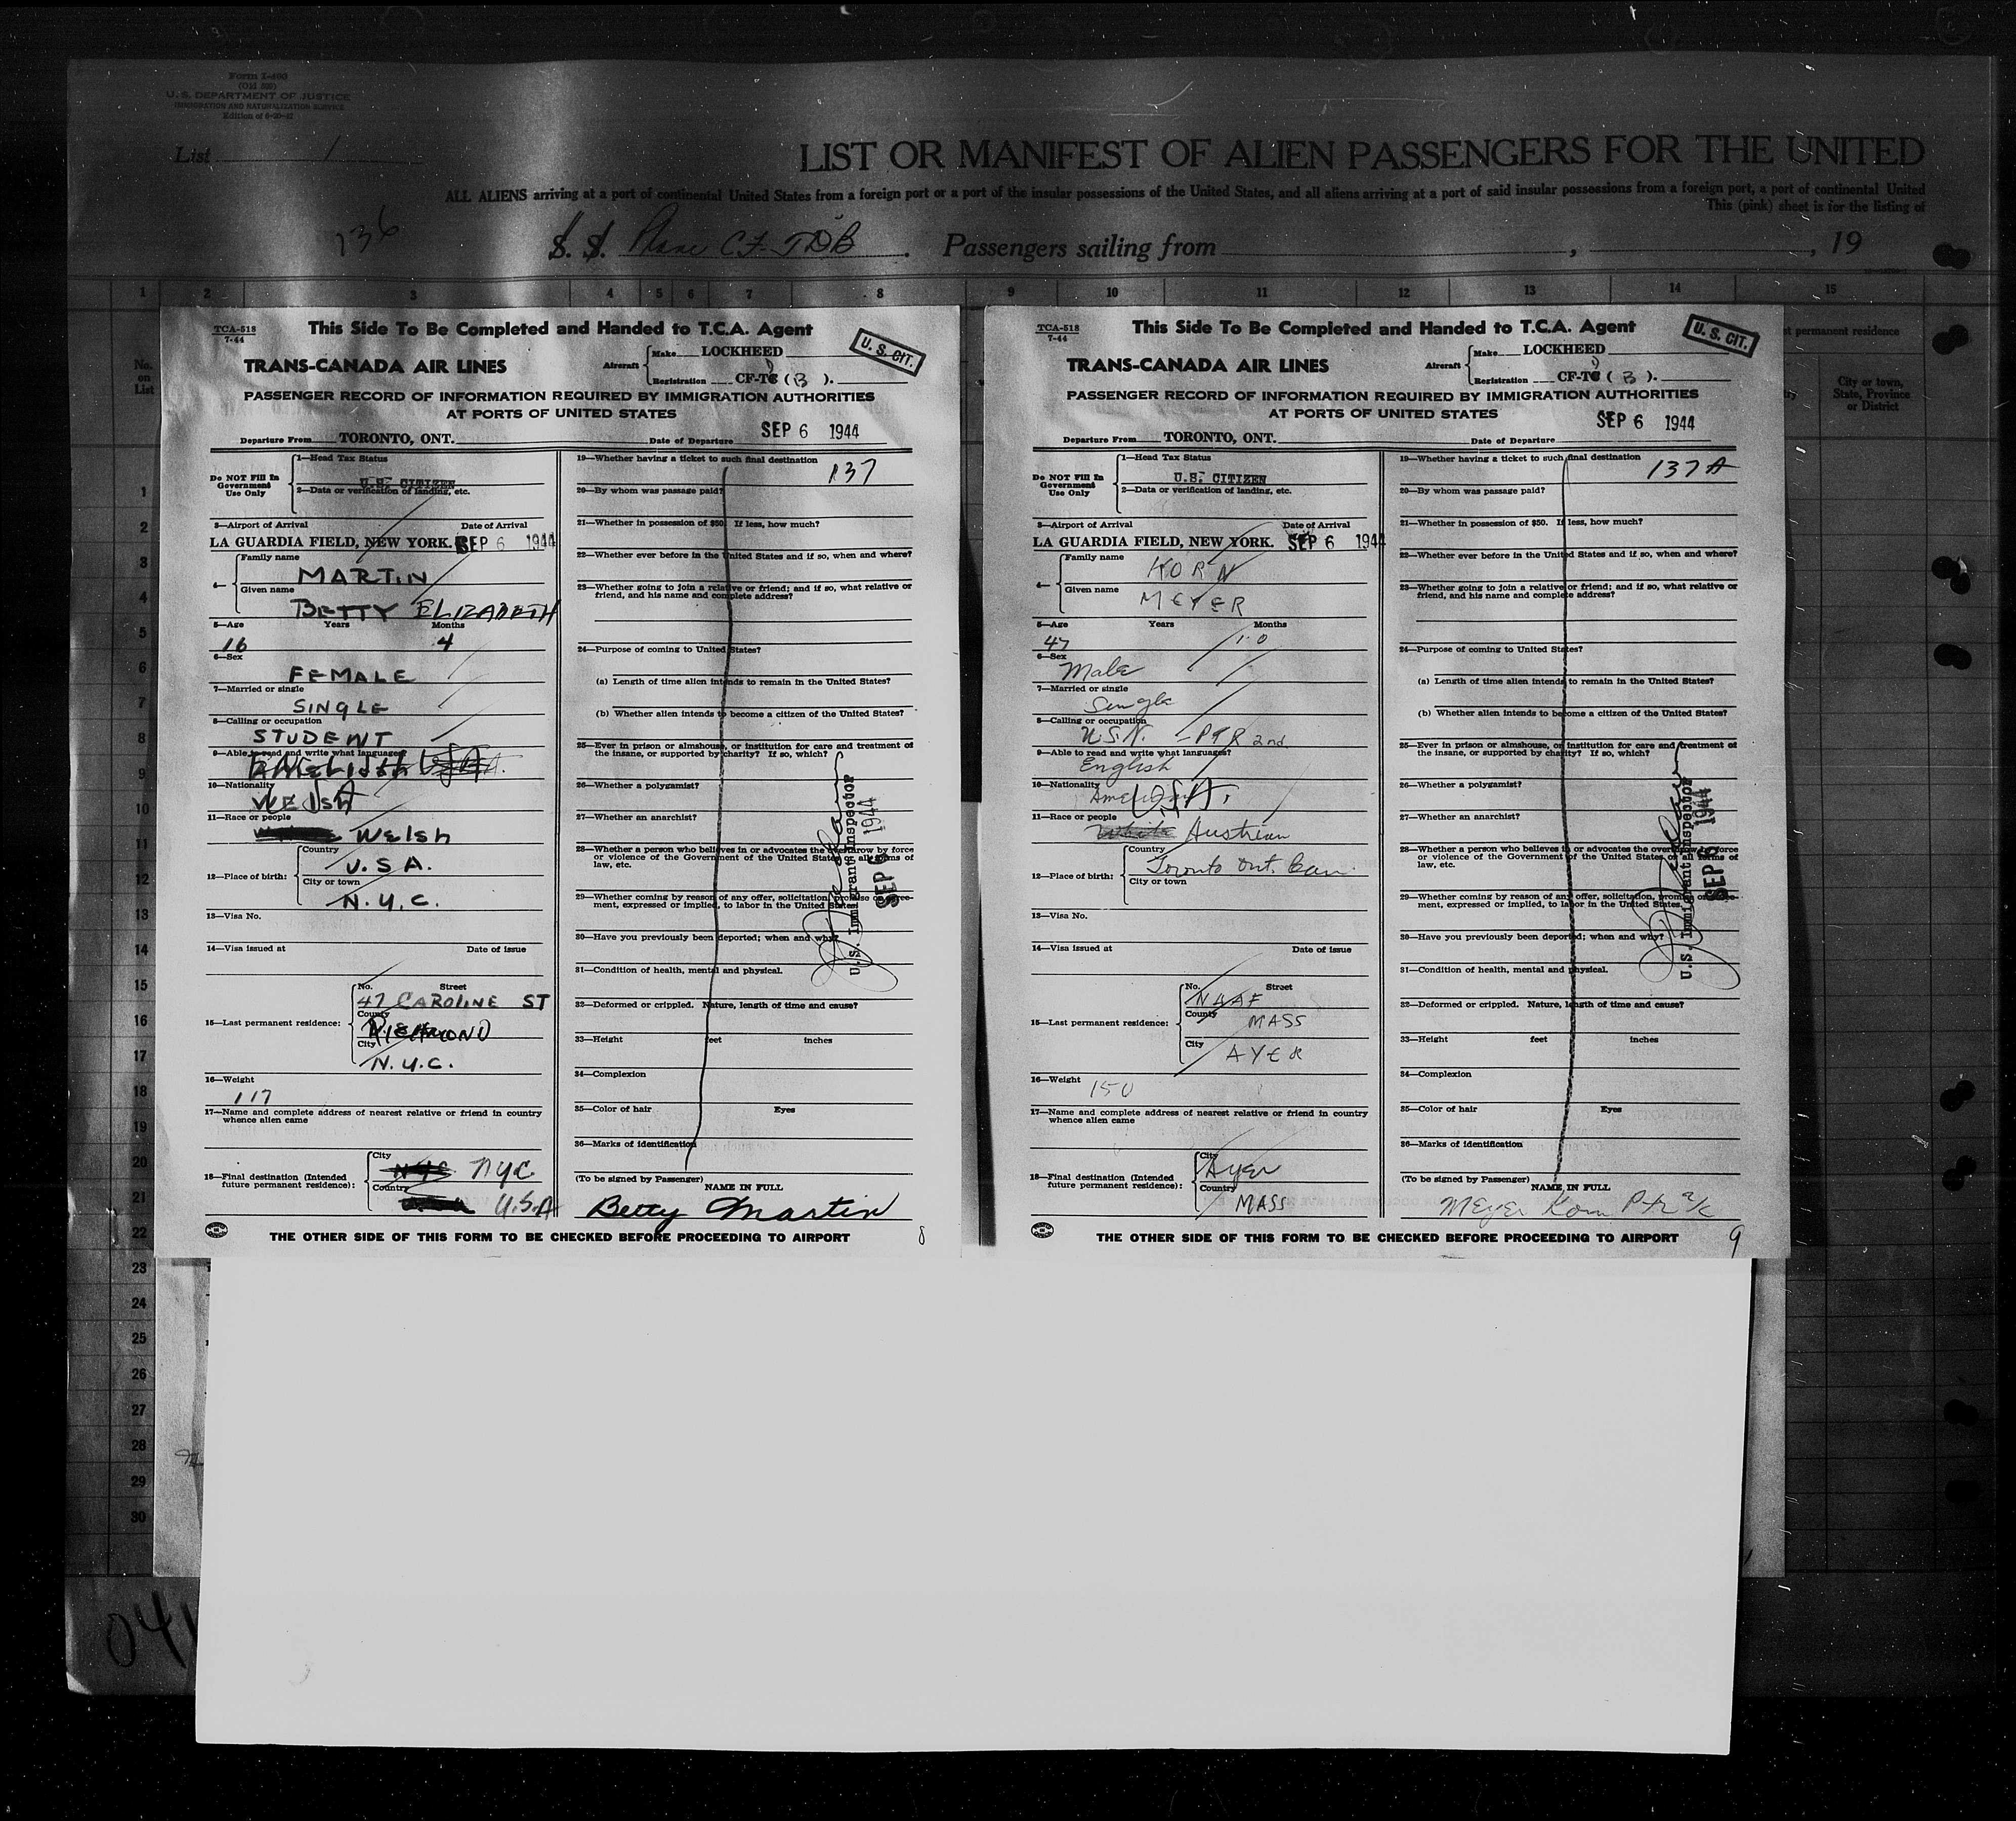 Form I-400
(Old 500)
U. S. DEPARTMENT OF JUSTICE
IMMIGRATION AND NATURALIZATION SERVICE
Edition of 6-20-42
List 1
LIST OR MANIFEST OF ALIEN PASSENGERS FOR THE UNITED
ALL ALIENS arriving at a port of continental United States from a foreign port or a port of the insular possessions of the United States, and all aliens arriving at a port of said insular possessions from a foreign port, a port of continental United
This (pink) sheet is for the listing of
136
S. S. Plane CF-TDB. Passengers sailing from , , 19
1 2 3 4 5 6 7 8 9 10 11 12 13 14 15
No. on List
t permanent residence
City or town, State, Province or District
1
2
3
4
5
6
7
8
9
10
11
12
13
14
15
16
17
18
19
20
21
22
23
24
25
26
27
28
29
30
TCA-518
7-44
This Side To Be Completed and Handed to T.C.A. Agent
U. S. CIT.
TRANS-CANADA AIR LINES
Aircraft Make LOCKHEED
Registration CF-TD (B).
PASSENGER RECORD OF INFORMATION REQUIRED BY IMMIGRATION AUTHORITIES
AT PORTS OF UNITED STATES
Departure From TORONTO, ONT. Date of Departure SEP 6 1944
Do NOT Fill In Government Use Only
1—Head Tax Status
U.S. CITIZEN
2—Data or verification of landing, etc.
3—Airport of Arrival Date of Arrival
LA GUARDIA FIELD, NEW YORK. SEP 6 1944
4— Family name
MARTIN
Given name
BETTY ELIZABETH
5—Age Years Months
16 4
6—Sex
FEMALE
7—Married or single
SINGLE
8—Calling or occupation
STUDENT
9—Able to read and write what languages
ENGLISH
10—Nationality
11—Race or people
Welsh
12—Place of birth: Country
U.S.A.
City or town
N.Y.C.
13—Visa No.
14—Visa issued at Date of issue
15—Last permanent residence:
No. Street
47 CAROLINE ST
County
RICHMOND
City
N.Y.C.
16—Weight
117
17—Name and complete address of nearest relative or friend in country whence alien came
18—Final destination (Intended future permanent residence):
City
NYC NYC
Country
U.S.A
19—Whether having a ticket to such final destination
137
20—By whom was passage paid?
21—Whether in possession of $50. If less, how much?
22—Whether ever before in the United States and if so, when and where?
23—Whether going to join a relative or friend; and if so, what relative or friend, and his name and complete address?
24—Purpose of coming to United States?
(a) Length of time alien intends to remain in the United States?
(b) Whether alien intends to become a citizen of the United States?
25—Ever in prison or almshouse, or institution for care and treatment of the insane, or supported by charity? If so, which?
26—Whether a polygamist?
27—Whether an anarchist?
28—Whether a person who believes in or advocates the overthrow by force or violence of the Government of the United States or all forms of law, etc.
29—Whether coming by reason of any offer, solicitation, promise or agreement, expressed or implied, to labor in the United States.
30—Have you previously been deported; when and why?
31—Condition of health, mental and physical.
32—Deformed or crippled. Nature, length of time and cause?
33—Height feet inches
34—Complexion
35—Color of hair Eyes
36—Marks of identification
U.S. Immigrant Inspector
SEP 6 1944
(To be signed by Passenger)
NAME IN FULL
Betty Martin
THE OTHER SIDE OF THIS FORM TO BE CHECKED BEFORE PROCEEDING TO AIRPORT
8
TCA-518
7-44
This Side To Be Completed and Handed to T.C.A. Agent
U. S. CIT.
TRANS-CANADA AIR LINES
Aircraft Make LOCKHEED
Registration CF-TD (B).
PASSENGER RECORD OF INFORMATION REQUIRED BY IMMIGRATION AUTHORITIES
AT PORTS OF UNITED STATES
Departure From TORONTO, ONT. Date of Departure SEP 6 1944
Do NOT Fill In Government Use Only
1—Head Tax Status
U.S. CITIZEN
2—Data or verification of landing, etc.
3—Airport of Arrival Date of Arrival
LA GUARDIA FIELD, NEW YORK. SEP 6 1944
4— Family name
KORN
Given name
MEYER
5—Age Years Months
47 10
6—Sex
Male
7—Married or single
Single
8—Calling or occupation
U.S.N. - PTR 2nd
9—Able to read and write what languages?
English
10—Nationality
U.S.A.
11—Race or people
White Austrian
12—Place of birth: Country
Toronto Ont. Can.
City or town
13—Visa No.
14—Visa issued at Date of issue
15—Last permanent residence:
No. Street
NAAF
County
MASS
City
AYER
16—Weight
150
17—Name and complete address of nearest relative or friend in country whence alien came
18—Final destination (Intended future permanent residence):
City
Ayer
Country
MASS
19—Whether having a ticket to such final destination
137A
20—By whom was passage paid?
21—Whether in possession of $50. If less, how much?
22—Whether ever before in the United States and if so, when and where?
23—Whether going to join a relative or friend; and if so, what relative or friend, and his name and complete address?
24—Purpose of coming to United States?
(a) Length of time alien intends to remain in the United States?
(b) Whether alien intends to become a citizen of the United States?
25—Ever in prison or almshouse, or institution for care and treatment of the insane, or supported by charity? If so, which?
26—Whether a polygamist?
27—Whether an anarchist?
28—Whether a person who believes in or advocates the overthrow by force or violence of the Government of the United States or all forms of law, etc.
29—Whether coming by reason of any offer, solicitation, promise or agreement, expressed or implied, to labor in the United States.
30—Have you previously been deported; when and why?
31—Condition of health, mental and physical.
32—Deformed or crippled. Nature, length of time and cause?
33—Height feet inches
34—Complexion
35—Color of hair Eyes
36—Marks of identification
U.S. Immigrant Inspector
SEP 6 1944
(To be signed by Passenger)
NAME IN FULL
Meyer Korn Ptr 2/c
THE OTHER SIDE OF THIS FORM TO BE CHECKED BEFORE PROCEEDING TO AIRPORT
9
041